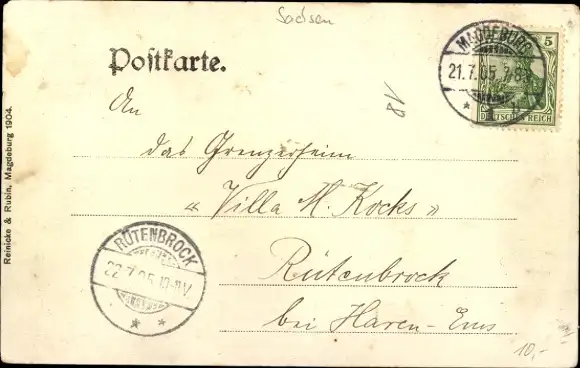 Sachsen
Postkarte.
MAGDEBURG
21.7.05.
5
DEUTSCHES REICH
18
An
das Grenzerheim
„Villa M. Kocks"
Rütenbrock
bei Haren-Ems
RÜTENBROCK
22.7.05.10-11V.
10,-
Reinicke & Rubin, Magdeburg 1904.